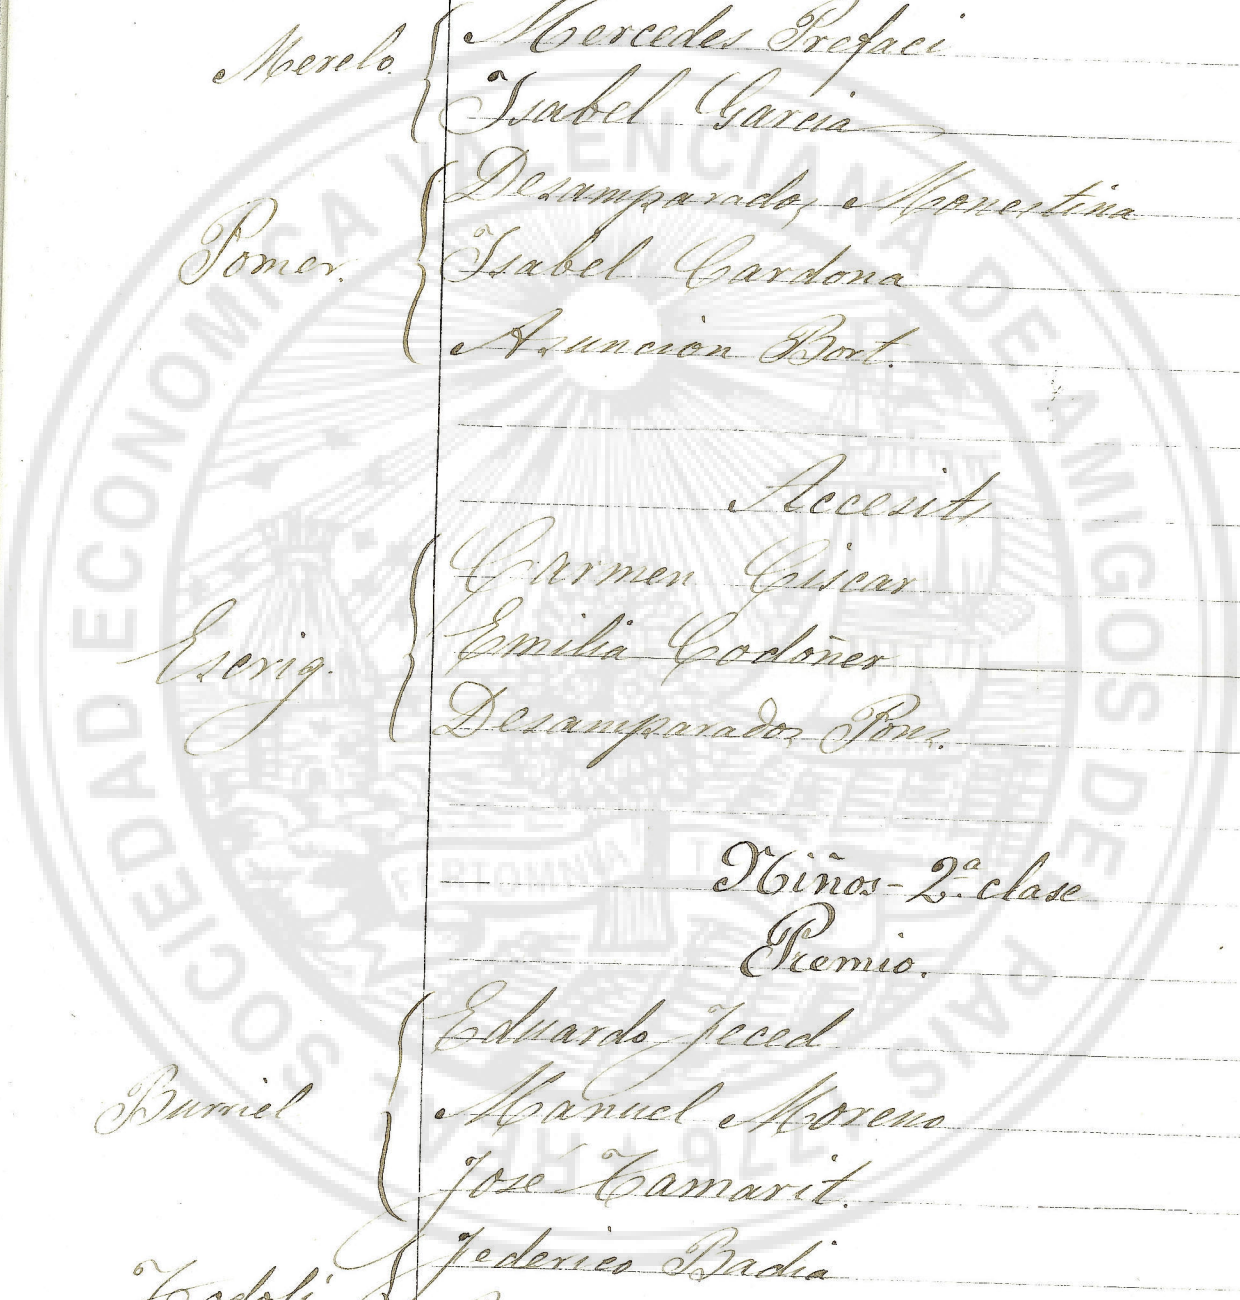 Merelo.
Mercedes Prefaci
Isabel Garcia
Pomer.
Desamparados Monestina
Isabel Cardona
Asuncion Bort.
Accesits
Escrig.
Carmen Giscar
Emilia Codoñer
Desamparados Pons.
Niños - 2ª clase
Premio.
Burriel
Eduardo Jeced
Manuel Moreno
José Tamarit.
Todolí
Federico Badia
SOCIEDAD ECONOMICA VALENCIANA DE AMIGOS DEL PAIS